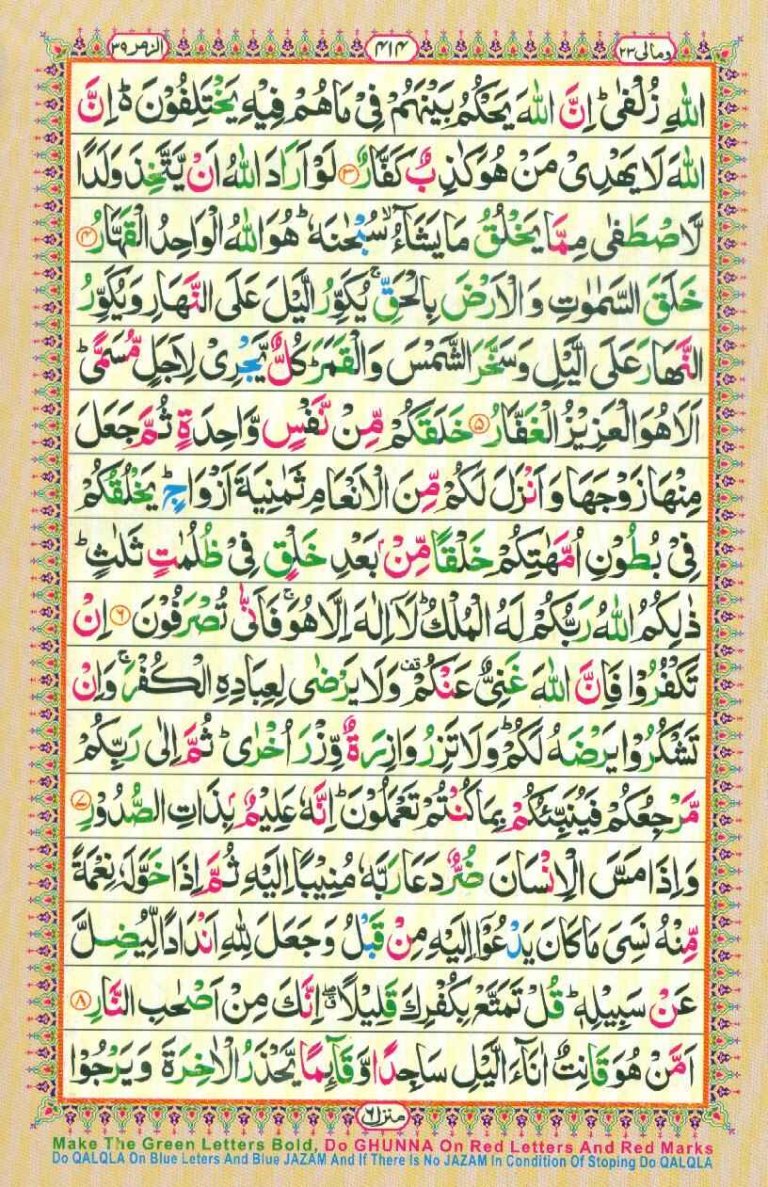 الزمر ٣٩
٤١٤
ومالی ٢٣
اللّٰهِ زُلْفٰىؕ اِنَّ اللّٰهَ یَحْكُمُ بَیْنَهُمْ فِیْ مَا هُمْ فِیْهِ یَخْتَلِفُوْنَ ؕ۬ اِنَّ
اللّٰهَ لَا یَهْدِیْ مَنْ هُوَ كٰذِبٌ كَفَّارٌ ﴿٣﴾ لَوْ اَرَادَ اللّٰهُ اَنْ یَّتَّخِذَ وَلَدًا
لَّاصْطَفٰى مِمَّا یَخْلُقُ مَا یَشَآءُ ۙ سُبْحٰنَهٗ ؕ هُوَ اللّٰهُ الْوَاحِدُ الْقَهَّارُ ﴿٤﴾
خَلَقَ السَّمٰوٰتِ وَ الْاَرْضَ بِالْحَقِّ ۚ یُكَوِّرُ الَّیْلَ عَلَى النَّهَارِ وَ یُكَوِّرُ
النَّهَارَ عَلَى الَّیْلِ وَ سَخَّرَ الشَّمْسَ وَ الْقَمَرَ ؕ كُلٌّ یَّجْرِیْ لِاَجَلٍ مُّسَمًّى ؕ
اَلَا هُوَ الْعَزِیْزُ الْغَفَّارُ ﴿٥﴾ خَلَقَكُمْ مِّنْ نَّفْسٍ وَّاحِدَةٍ ثُمَّ جَعَلَ
مِنْهَا زَوْجَهَا وَ اَنْزَلَ لَكُمْ مِّنَ الْاَنْعَامِ ثَمٰنِیَةَ اَزْوَاجٍ ؕ یَخْلُقُكُمْ
فِیْ بُطُوْنِ اُمَّهٰتِكُمْ خَلْقًا مِّنْۢ بَعْدِ خَلْقٍ فِیْ ظُلُمٰتٍ ثَلٰثٍ ؕ
ذٰلِكُمُ اللّٰهُ رَبُّكُمْ لَهُ الْمُلْكُ ؕ لَاۤ اِلٰهَ اِلَّا هُوَ ۚ فَاَنّٰى تُصْرَفُوْنَ ﴿٦﴾ اِنْ
تَكْفُرُوْا فَاِنَّ اللّٰهَ غَنِیٌّ عَنْكُمْ ۫ وَ لَا یَرْضٰى لِعِبَادِهِ الْكُفْرَ ۚ وَ اِنْ
تَشْكُرُوْا یَرْضَهُ لَكُمْ ؕ وَ لَا تَزِرُ وَازِرَةٌ وِّزْرَ اُخْرٰى ؕ ثُمَّ اِلٰى رَبِّكُمْ
مَّرْجِعُكُمْ فَیُنَبِّئُكُمْ بِمَا كُنْتُمْ تَعْمَلُوْنَ ؕ اِنَّهٗ عَلِیْمٌۢ بِذَاتِ الصُّدُوْرِ ﴿٧﴾
وَ اِذَا مَسَّ الْاِنْسَانَ ضُرٌّ دَعَا رَبَّهٗ مُنِیْبًا اِلَیْهِ ثُمَّ اِذَا خَوَّلَهٗ نِعْمَةً
مِّنْهُ نَسِیَ مَا كَانَ یَدْعُوْۤا اِلَیْهِ مِنْ قَبْلُ وَ جَعَلَ لِلّٰهِ اَنْدَادًا لِّیُضِلَّ
عَنْ سَبِیْلِهٖ ؕ قُلْ تَمَتَّعْ بِكُفْرِكَ قَلِیْلًا ۖۗ اِنَّكَ مِنْ اَصْحٰبِ النَّارِ ﴿٨﴾
اَمَّنْ هُوَ قَانِتٌ اٰنَآءَ الَّیْلِ سَاجِدًا وَّ قَآىِٕمًا یَّحْذَرُ الْاٰخِرَةَ وَ یَرْجُوْا
منزل ٦
Make The Green Letters Bold, Do GHUNNA On Red Letters And Red Marks
Do QALQLA On Blue Leters And Blue JAZAM And If There Is No JAZAM In Condition Of Stoping Do QALQLA